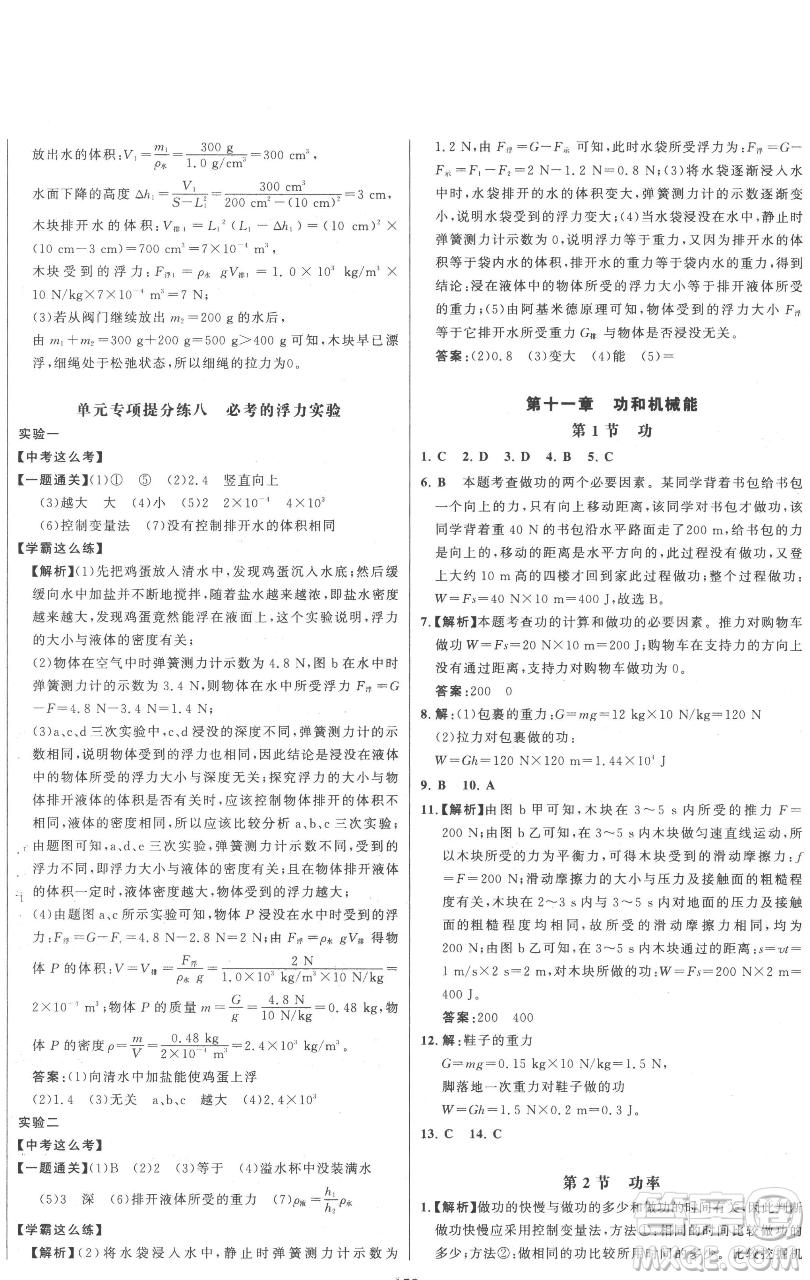 放出水的体积:V₁=m₁/ρ水=300 g/1.0 g/cm³=300 cm³
水面下降的高度 Δh₁=V₁/(S-L₁²)=300 cm³/(200 cm²-(10 cm)²)=3 cm
木块排开水的体积:V排1=L₁²(L₁-Δh₁)=(10 cm)²×
(10 cm-3 cm)=700 cm³=7×10⁻⁴ m³
木块受到的浮力:F浮1=ρ水 gV排1=1.0×10³ kg/m³×
10 N/kg×7×10⁻⁴ m³=7 N
(3)若从阀门继续放出 m₂=200 g的水后,
由 m₁+m₂=300 g+200 g=500 g可知,木块早已漂
浮,细绳处于松弛状态,所以细绳的拉力为0。
单元专项提分练八 必考的浮力实验
实验一
【中考这么考】
【一题通关】(1)① ⑤ (2)2.4 竖直向上
(3)越大 大 (4)小 (5)2×10⁻⁴ 4×10³
(6)控制变量法 (7)没有控制排开水的体积相同
【学霸这么练】
【解析】(1)先把鸡蛋放入清水中,发现鸡蛋沉入水底;然后缓
缓向水中加盐并不断地搅拌,随着盐水越来越浓,盐水的密度
越来越大,发现鸡蛋竟然能浮在液面上,这个实验说明,浮力
的大小与液体的密度有关;
(2)物体在空气中时弹簧测力计示数为4.8 N,图b在水中
时弹簧测力计示数为3.4 N,则物体在水中时的浮力为F浮=G
-F=4.8 N-3.4 N=1.4 N;
(3)a、c、d三次实验中,c、d浸没的深度不同,弹簧测力计的示
数相同,说明物体受到的浮力相同,因此结论是浸没在液体
中的物体所受的浮力大小与深度无关;探究浮力的大小与液
体密度有关时,应该控制物体排开液体的体积不变,改变液
体的密度,所以应该比较分析a、b、c三次实验;
由题图可知,a、d、e三次实验说明,在物体排开液体
的体积一定时,液体密度越大,浮力越大;
(4)由题图a、c所示实验可知,物体P浸没在水中时受的浮
力:F浮=G-F=4.8 N-2.8 N=2 N,由F浮=ρ水 gV排得物
体P的体积:V=V排=F浮/(ρ水 g)=2 N/(1.0×10³ kg/m³×10 N/kg)=
2×10⁻⁴ m³;物体P的质量m=G/g=4.8 N/(10 N/kg)=0.48 kg,物
体P的密度ρ=m/V=0.48 kg/(2×10⁻⁴ m³)=2.4×10³ kg/m³。
答案:(1)向清水中加盐能使鸡蛋上浮
(2)1.4 (3)无关 a、b、c 越大 (4)2.4×10³
实验二
【中考这么考】
【一题通关】(1)B (2)2 (3)等于 (4)溢水杯中未装满水
(5)3 深 (6)排开液体所受的重力 (7)ρ液=h₁/h₂ρ水
【学霸这么练】
【解析】(2)将水袋浸入水中,静止时弹簧测力计示数为
1.2 N,由F浮=G-F示可知,此时水袋所受浮力为F浮
=G-F示=F₁-F₂=2 N-1.2 N=0.8 N;(3)将水袋逐渐浸入水
中时,水袋排开的水的体积变大,弹簧测力计的示数逐渐变
小,说明水袋受到的浮力变大;(4)将水袋浸没在水中,静止时
弹簧测力计示数为0,说明浮力等于重力,又因为水袋排开水
的体积等于袋内水的体积,水袋的重力等于袋内水的重力,得到
结论:浸在液体中的物体所受的浮力大小等于物体排开液体所受
的重力;(5)由阿基米德原理可知,物体受到的浮力大小F浮
等于它排开水所受重力G排与物体是否浸没无关。
答案:(2)0.8 (3)变大 (4)能 (5)=
第十一章 功和机械能
第1节 功
1. C 2. D 3. D 4. B 5. C
6. B 本题考查做功的两个必要因素。某同学背着书包给书包
一个向上的力,力向上移动了距离,该同学对书包做功;该
同学背着重40 N的书包沿水平路面走了200 m,给书包的力
是向上的,移动的距离是水平方向的,因此此过程没做功,又登
上大约10 m高的四楼才回家此过程做功;做功
W=Fs=40 N×10 m=400 J,故选B。
7.【解析】本题考查功的计算和做功的必要因素。推力对购物车
做功W=Fs=20 N×10 m=200 J。购物车在支持力的方向上
没有移动距离,支持力对购物车做功为0。
答案:200 0
8. 解:(1)包裹的重力:G=mg=12 kg×10 N/kg=120 N
(2)拉力对包裹做的功:
W=Gh=120 N×1.2 m=144 J
9. B 10. A
11.【解析】由图b甲可知,木块在3~5 s内所受的推力F=
200 N;由图b乙可知,在3~5 s内木块做匀速直线运动,所
以木块所受的力为平衡力,可知木块受到的滑动摩擦力f
=F=200 N;滑动摩擦力的大小与压力及接触面的粗糙程
度有关,木块在2~3 s内与3~5 s内对地面的压力及接触
面的粗糙程度不变,所以所受的滑动摩擦力仍为200 N;由
图b乙可知在3~5 s内木块通过的距离:s=vt=
1 m/s×2 s=2 m;推力F做的功:W=Fs=200 N×2 m=
400 J。
答案:200 400
12. 解:鞋子的重力
G=mg=0.15 kg×10 N/kg=1.5 N
脚落地一次重力对鞋子做的功
W=Gh=1.5 N×0.2 m=0.3 J
13. C 14. C
第2节 功率
1.【解析】做功的快慢与做功的多少和做功的时间有关,因此判断
做功快慢应采用控制变量法,方法①:控制时间相同,比较做功
的多少;方法②:控制做功的多少相同,比较时间;比较挖掘机